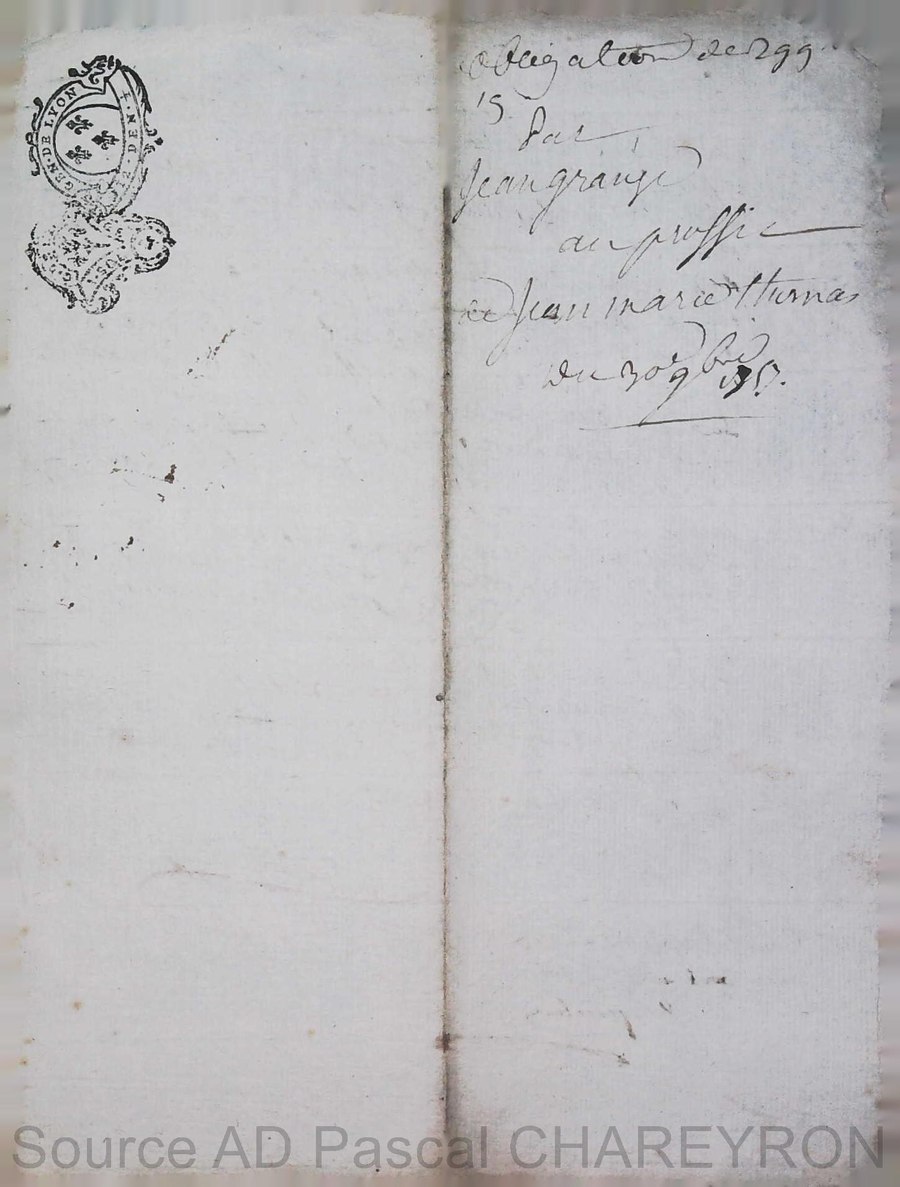 GEN · DE LYON
obligation de 299
15
Par
Jean grange
au proffit
de Jean marie thomas
du 30e 9bre
Source AD Pascal CHAREYRON